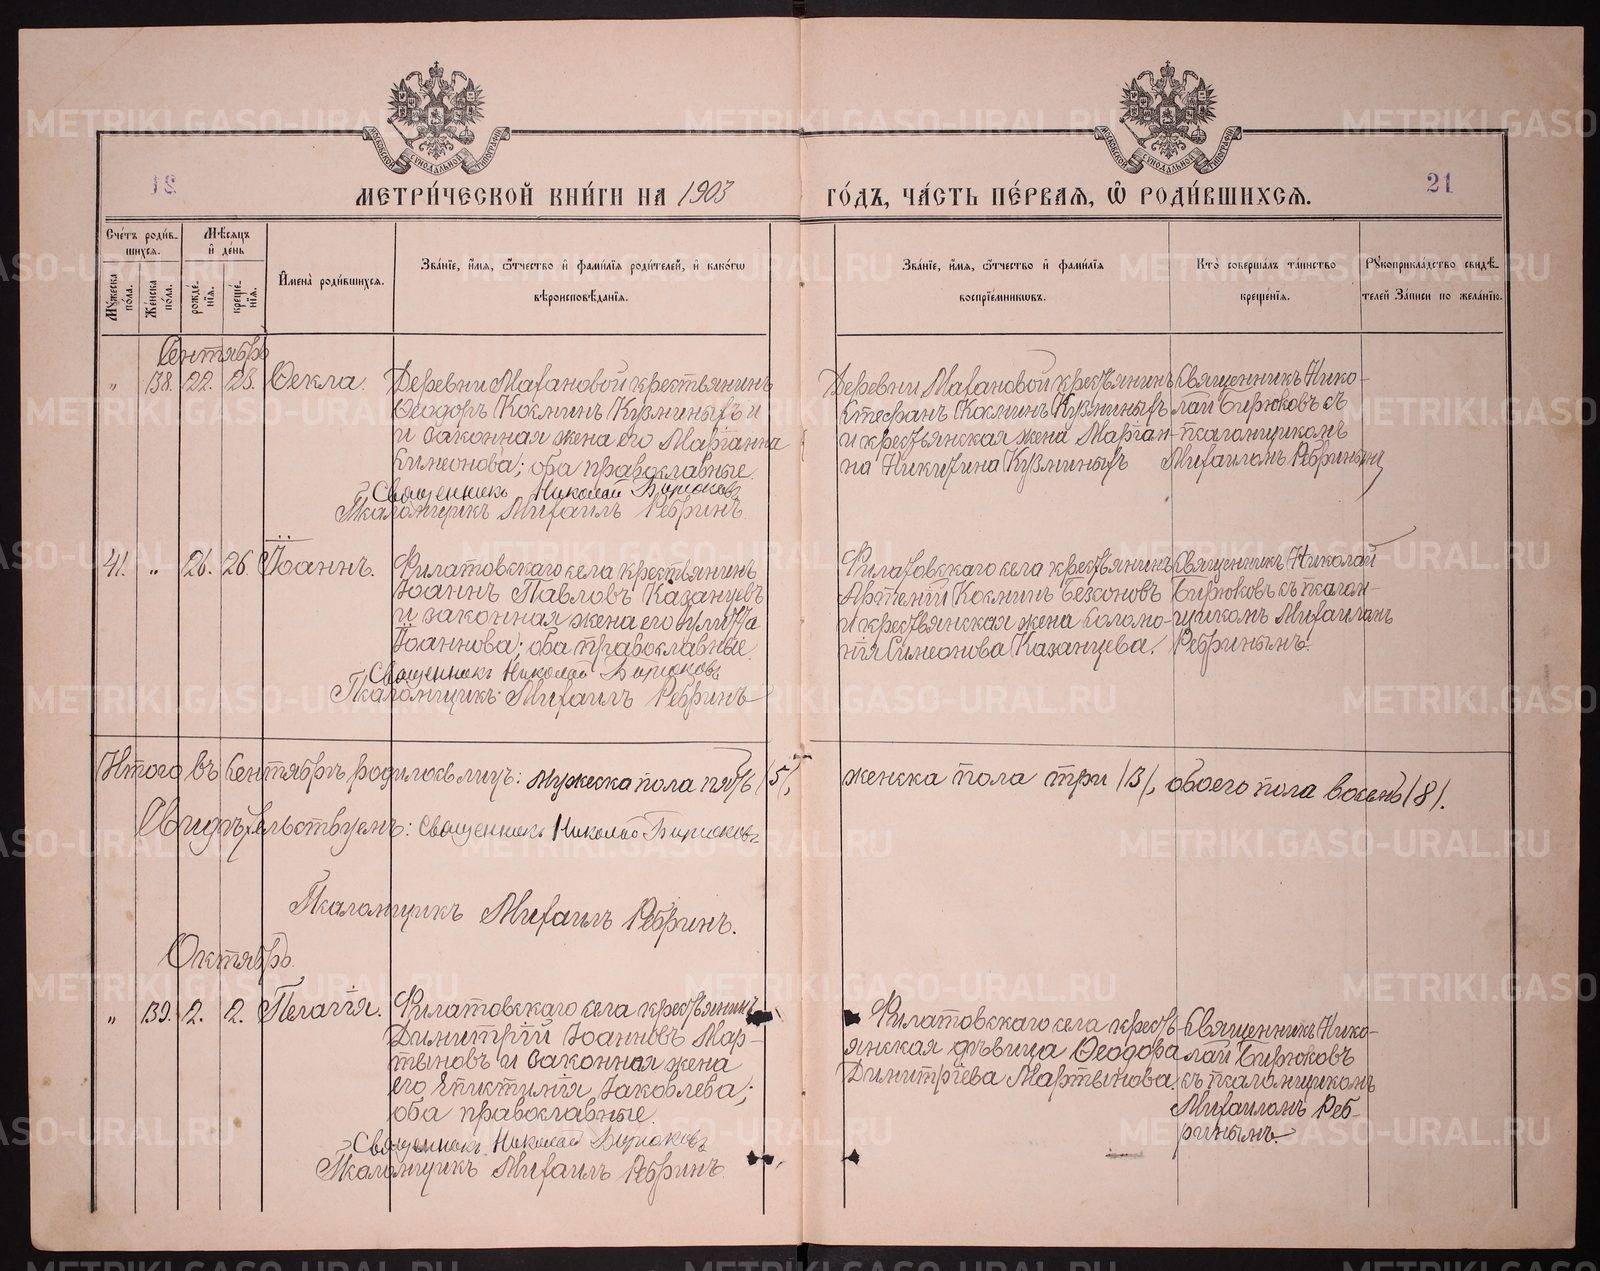 МЕТРИЧЕСКОЙ КНИГИ НА 1903
ГОДЪ, ЧАСТЬ ПЕРВАЯ, Ѡ РОДИВШИХСЯ.
21
Счетъ родив-
шихся.
Мѣсяцъ
и день
Мужеска
пола.
Женска
пола.
рожде-
нія.
креще-
нія.
Имена родившихся.
Званіе, имя, ѿчество и фамилія родителей, и какогѡ
вѣроисповѣданія.
Званіе, имя, ѿчество и фамилія
воспріемниковъ.
Кто совершалъ таинство
крещенія.
Рукоприкладство свидѣ-
телей записи по желанію.
Сентябрь
„ 38. 22. 23. Ѳекла.
Деревни Макановой крестьянинъ
Ѳеодоръ Космин Кузминыхъ и
и законная жена его Маріанна
Симеонова; оба православные.
Священникъ Николай Бирюковъ
Псаломщикъ Михаилъ Ребринъ.
Деревни Макановой крестьянинъ
Стефанъ Косминъ Кузминыхъ
и крестьянская жена Маріан-
на Никитина Кузминыхъ
Священникъ Нико-
лай Бирюковъ съ
псаломщикомъ
Михаиломъ Ребринымъ
41. „ 26. 26. Іоаннъ.
Филатовскаго села крестьянинъ
Іоаннъ Павловъ Казанцевъ
и законная жена его Іулитта
Іоаннова; оба православные.
Священникъ Николай Бирюковъ
Псаломщикъ Михаилъ Ребринъ
Филатовскаго села крестьянинъ
Артемій Косминъ Безсоновъ
и крестьянская жена Соломо-
нія Симеонова Казанцева.
Священникъ Николай
Бирюковъ съ псалом-
щикомъ Михаиломъ
Ребринымъ.
Итого въ Сентябрѣ родилось лицъ: мужеска пола пять /5/, женска пола три /3/, обоего пола восемь /8/.
Свидѣтельствуемъ: Священникъ Николай Бирюковъ
Псаломщикъ Михаилъ Ребринъ.
Октябрь.
„ 39. 2. 2. Пелагія.
Филатовскаго села крестьянинъ
Димитрій Іоанновъ Мар-
тыновъ и законная жена
его Епистимія Іаковлева;
оба православные.
Священникъ Николай Бирюковъ
Псаломщикъ Михаилъ Ребринъ.
Филатовскаго села кресть-
янская дѣвица Ѳеодора
Димитріева Мартынова.
Священникъ Нико-
лай Бирюковъ
съ псаломщикомъ
Михаиломъ Реб-
ринымъ.
METRIKI.GASO-URAL.RU